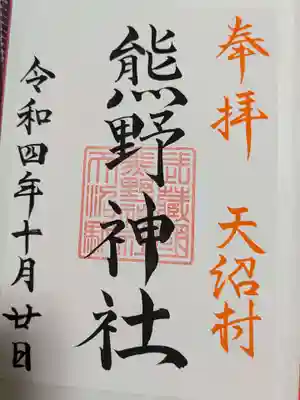 奉拝 天沼村
熊野神社
令和四年十月廿日